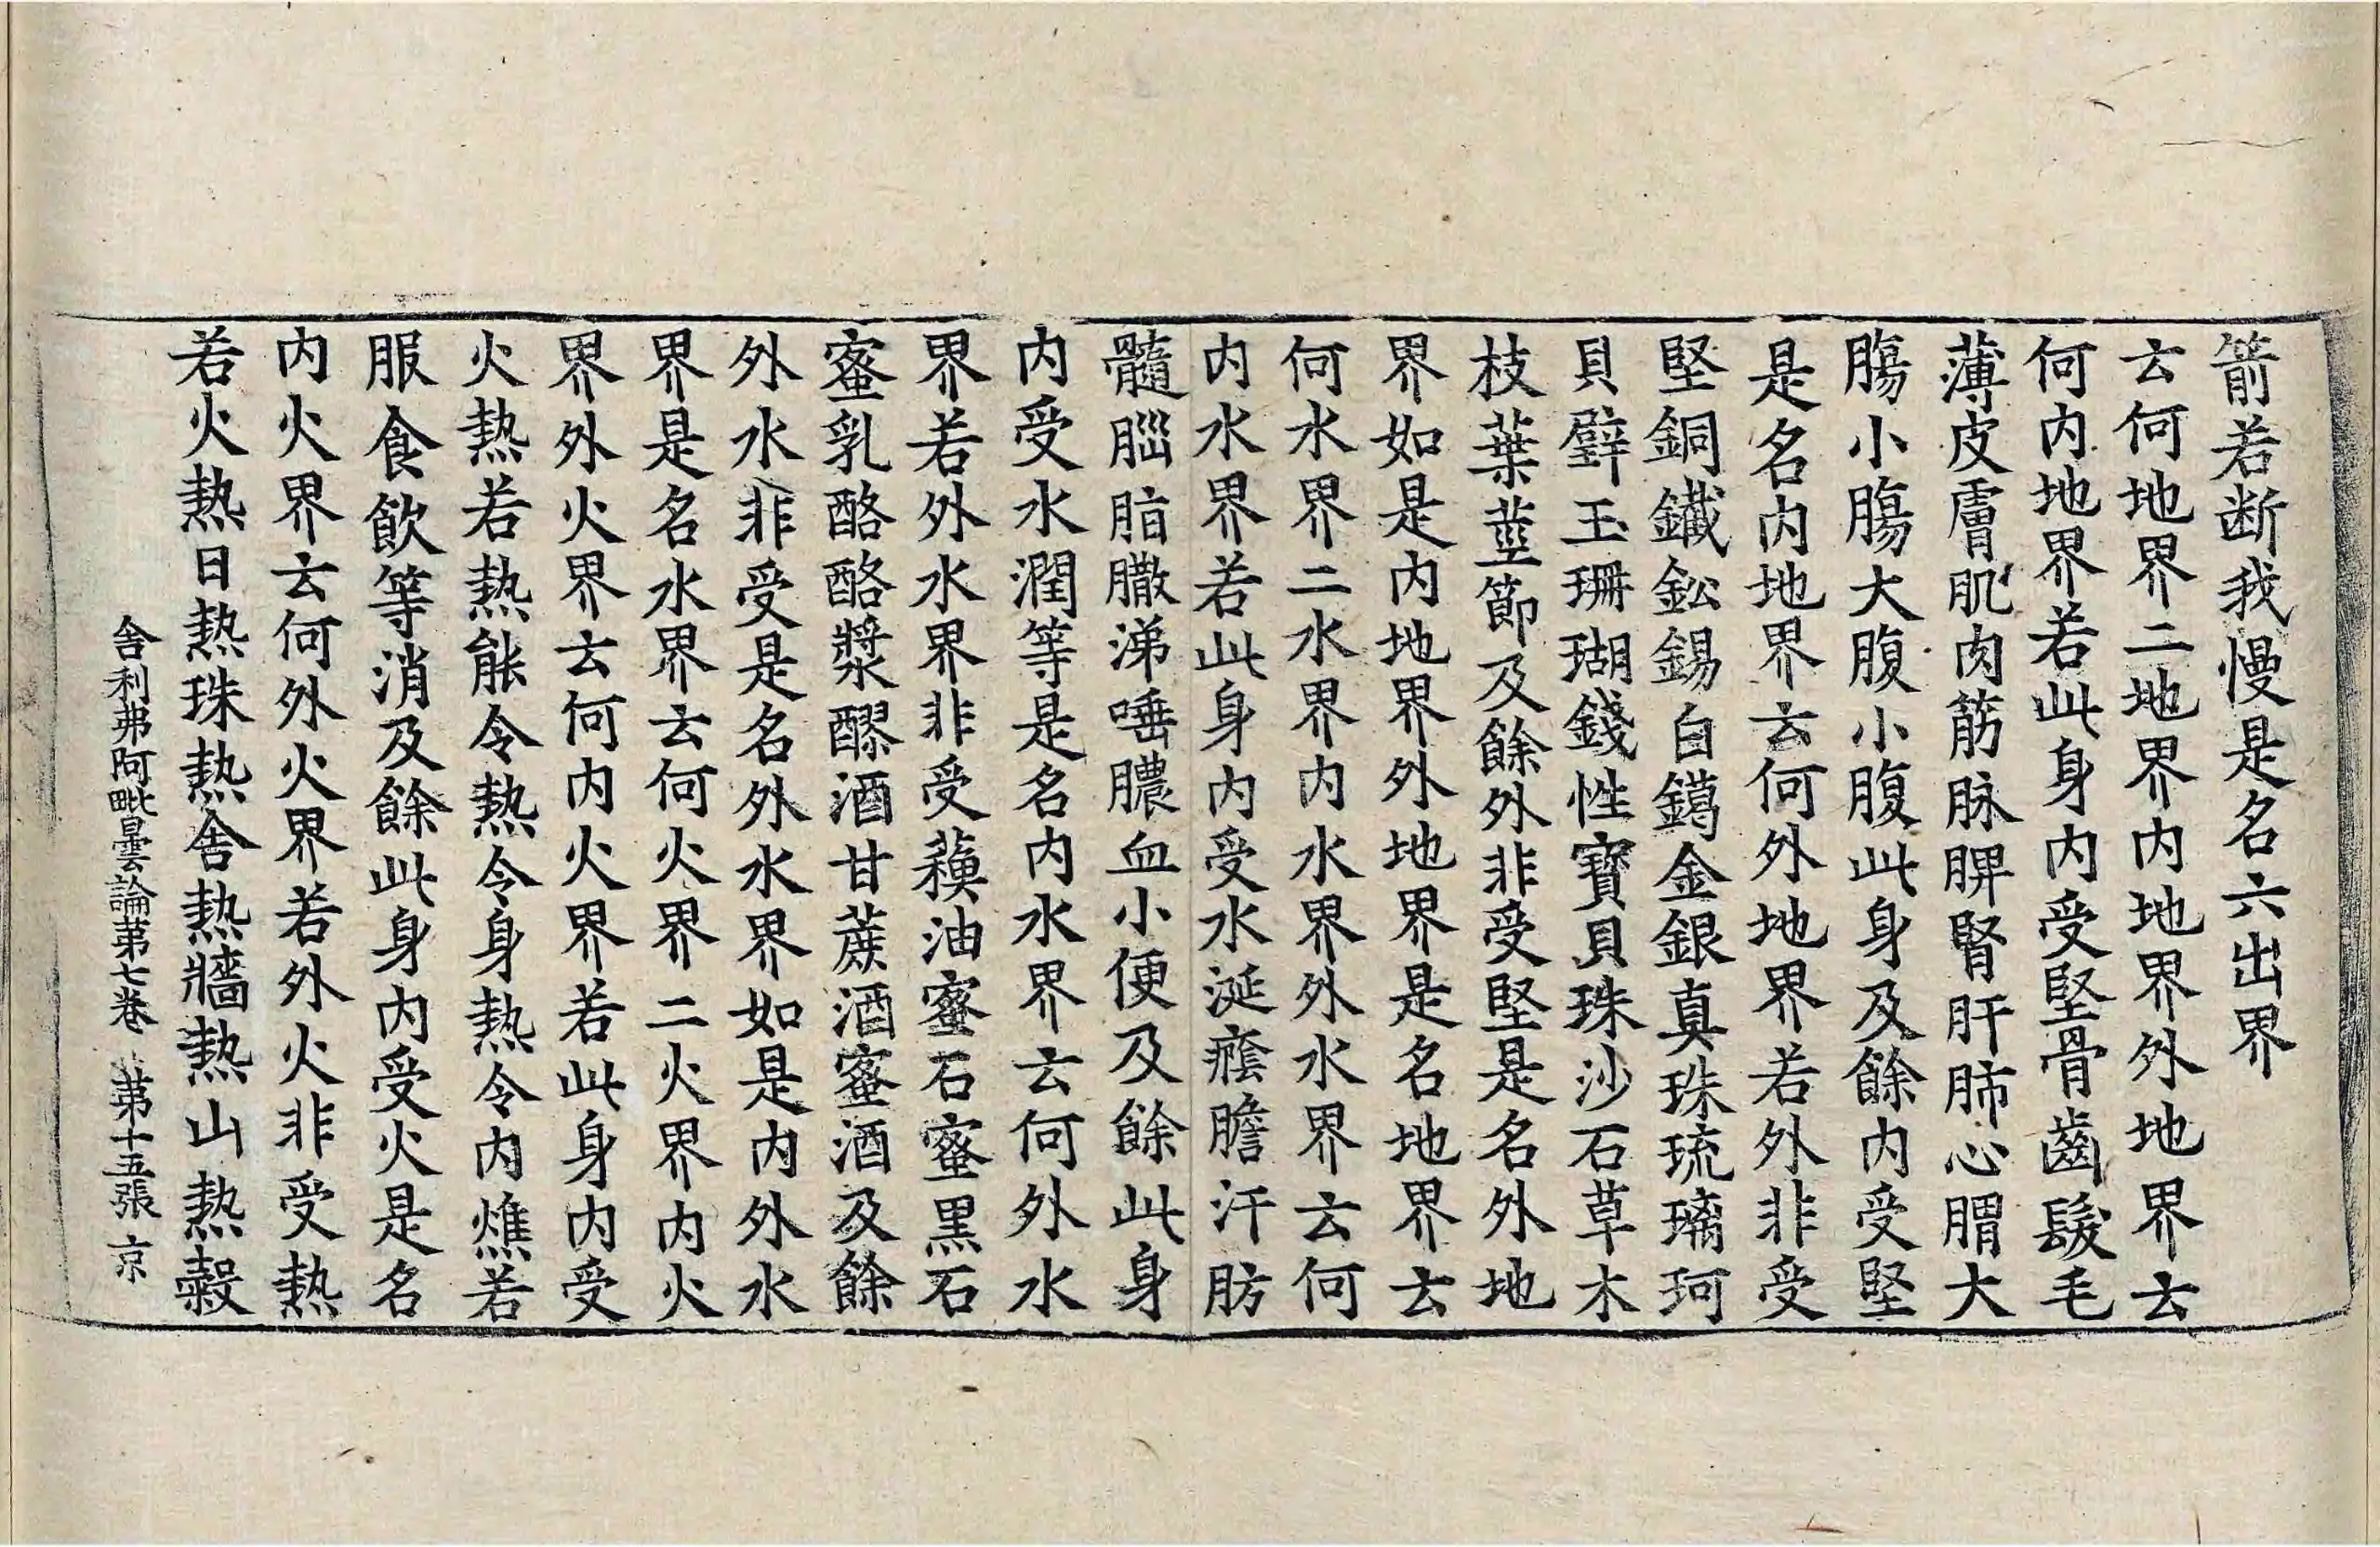 箭若断我慢是名六出界
云何地界二地界内地界外地界云
何内地界若此身内受堅骨齒髮毛
薄皮膚肌肉筋脉脾腎肝肺心胃大
腸小腸大腹小腹此身及餘内受堅
是名内地界云何外地界若外非受
堅銅鐵鈆錫白鑞金銀真珠琉璃珂
貝璧玉珊瑚錢性寶貝珠沙石草木
枝葉莖節及餘外非受堅是名外地
界如是内地界外地界是名地界云
何水界二水界内水界外水界云何
内水界若此身内受水涎癊膽汗肪
髓腦脂䐛涕唾膿血小便及餘此身
内受水潤等是名内水界云何外水
界若外水界非受蘓油蜜石蜜黒石
蜜乳酪酪漿醪酒甘蔗酒蜜酒及餘
外水非受是名外水界如是内外水
界是名水界云何火界二火界内火
界外火界云何内火界若此身内受
火熱若熱能令熱令身熱令内燋若
服食飲等消及餘此身内受火是名
内火界云何外火界若外火非受熱
若火熱日熱珠熱舍熱牆熱山熱糓
舍利弗阿毗曇論第七卷 第十五張 京